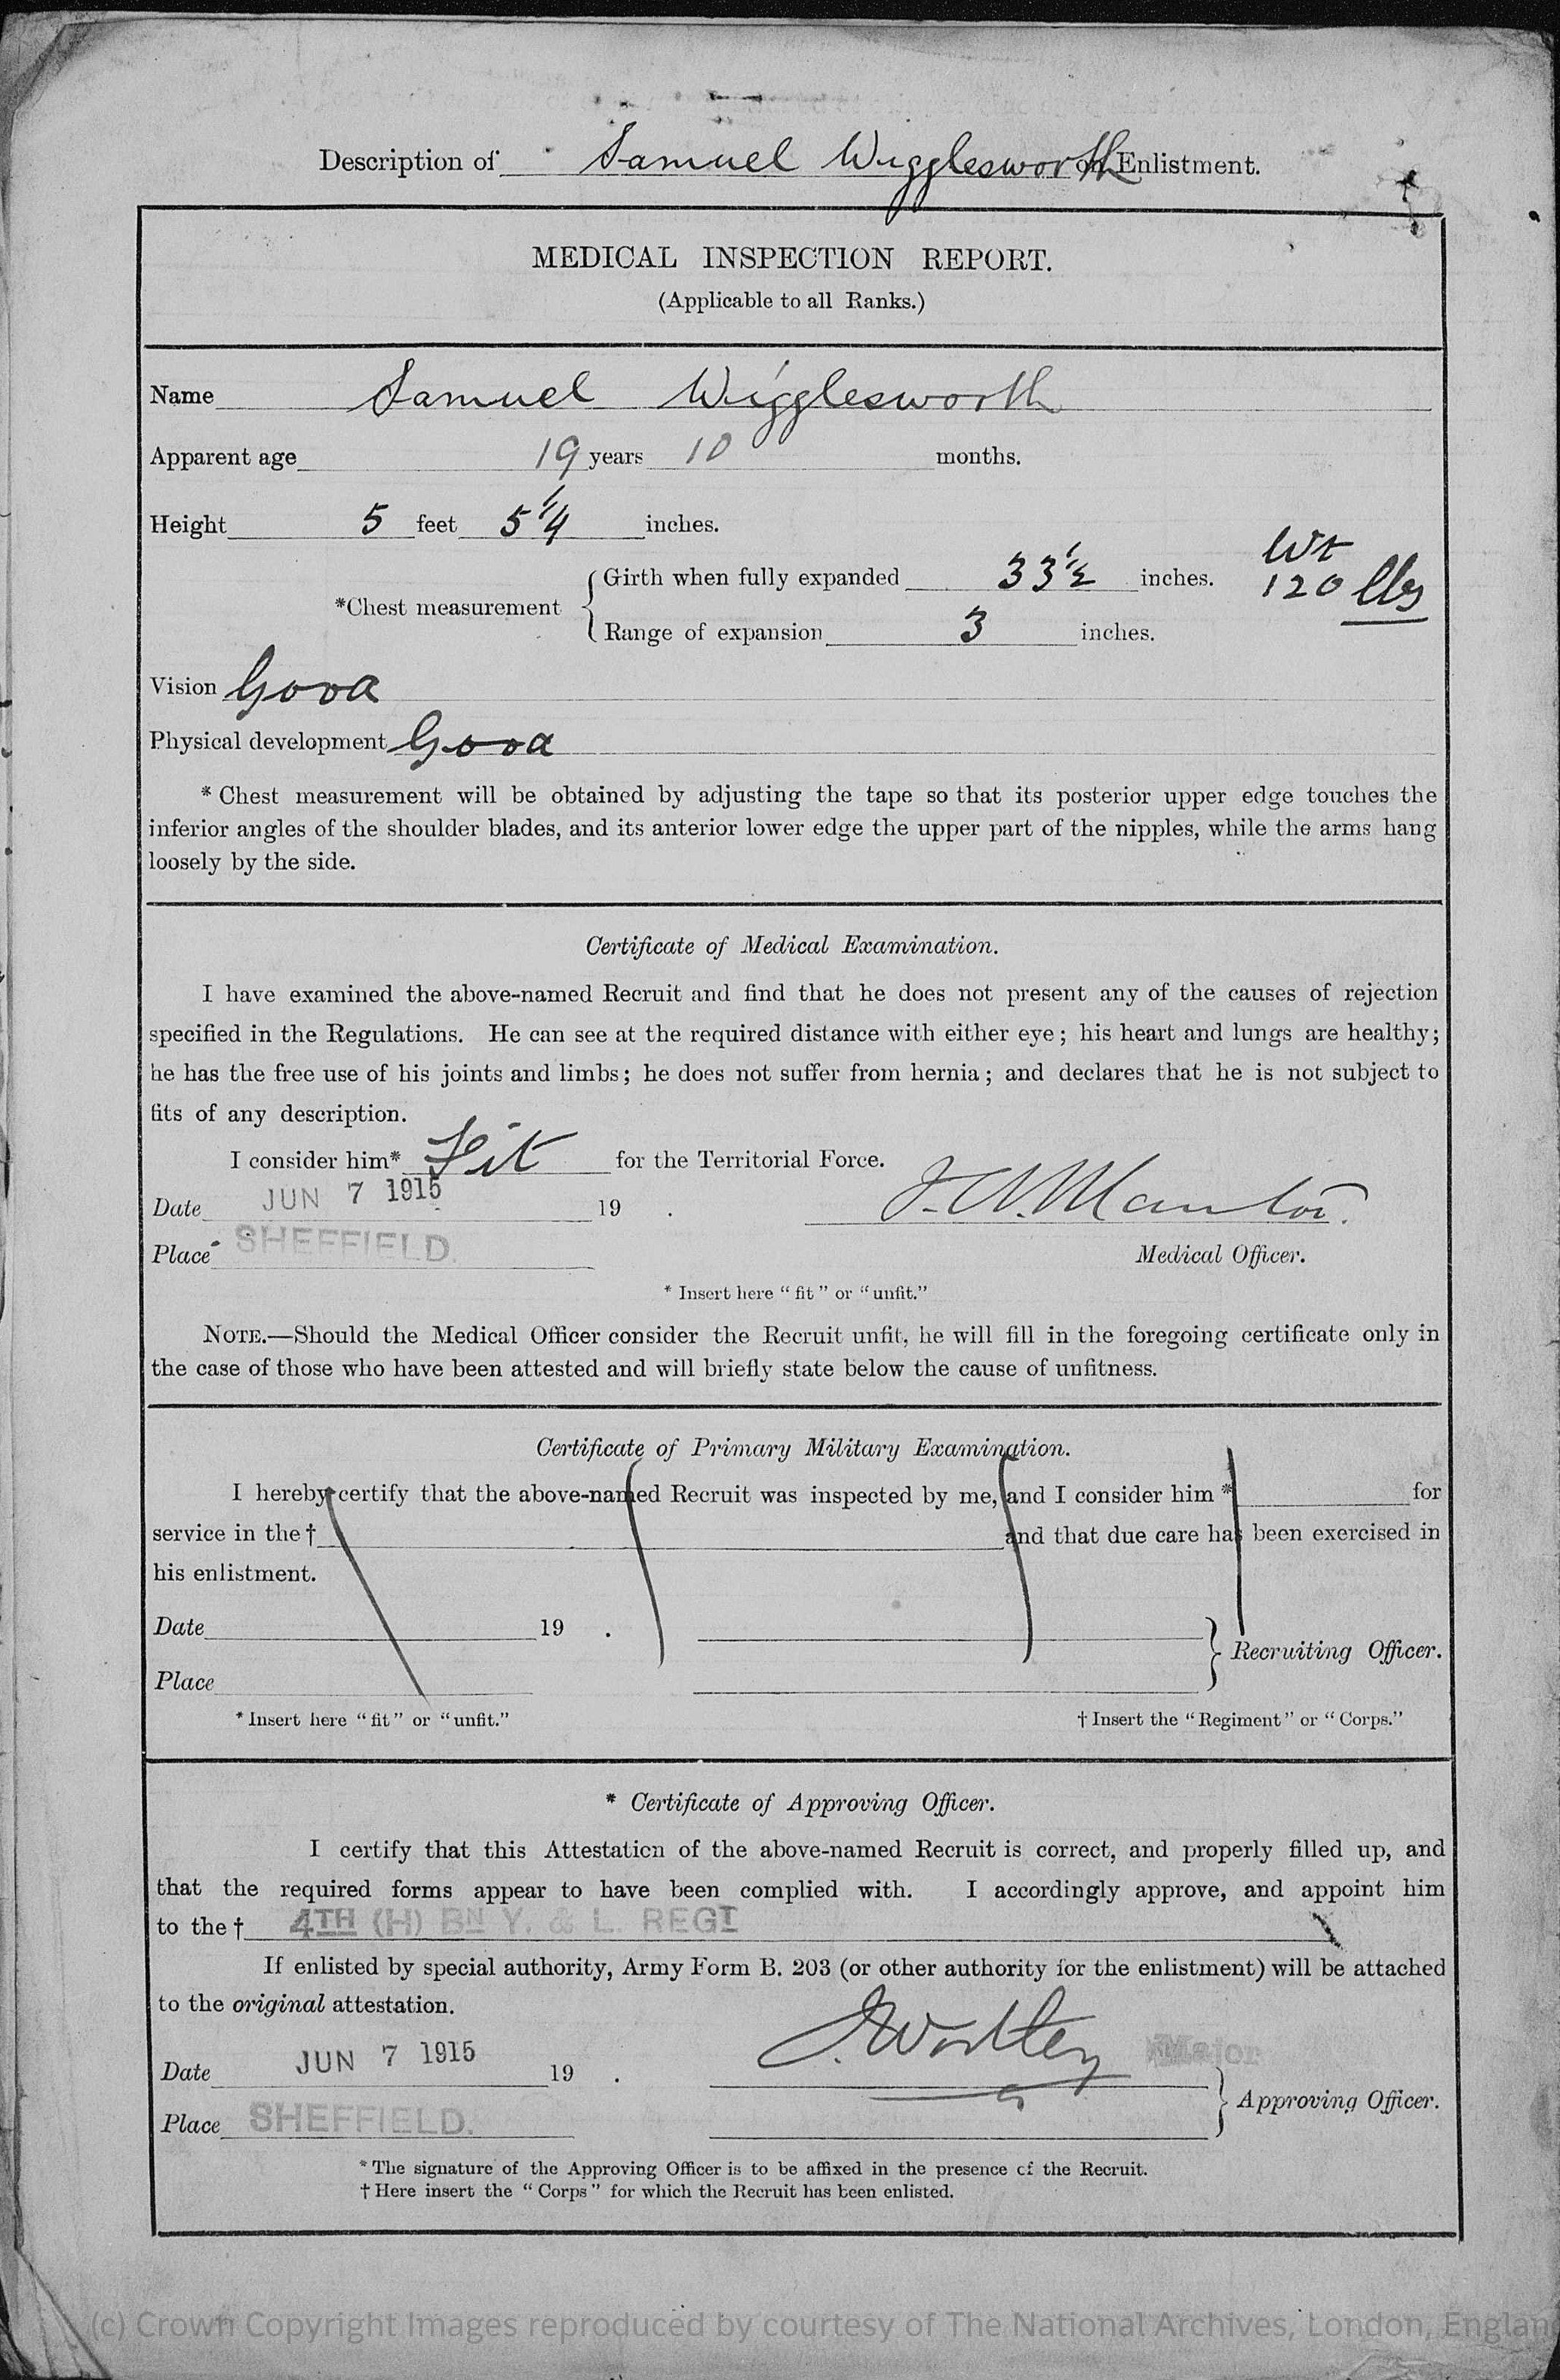 Description of Samuel Wigglesworth on Enlistment.
MEDICAL INSPECTION REPORT.
(Applicable to all Ranks.)
Name Samuel Wigglesworth
Apparent age 19 years 10 months.
Height 5 feet 5 1/4 inches.
Wt
*Chest measurement { Girth when fully expanded 33 1/2 inches. 120 lbs
Range of expansion 3 inches.
Vision Good
Physical development Good
* Chest measurement will be obtained by adjusting the tape so that its posterior upper edge touches the
inferior angles of the shoulder blades, and its anterior lower edge the upper part of the nipples, while the arms hang
loosely by the side.
Certificate of Medical Examination.
I have examined the above-named Recruit and find that he does not present any of the causes of rejection
specified in the Regulations. He can see at the required distance with either eye; his heart and lungs are healthy;
he has the free use of his joints and limbs; he does not suffer from hernia; and declares that he is not subject to
fits of any description.
I consider him* Fit for the Territorial Force.
Date JUN 7 1915 19 .
Place SHEFFIELD. Medical Officer.
* Insert here "fit" or "unfit."
NOTE.—Should the Medical Officer consider the Recruit unfit, he will fill in the foregoing certificate only in
the case of those who have been attested and will briefly state below the cause of unfitness.
Certificate of Primary Military Examination.
I hereby certify that the above-named Recruit was inspected by me, and I consider him * for
service in the † and that due care has been exercised in
his enlistment.
Date 19 .
} Recruiting Officer.
Place
* Insert here "fit" or "unfit." † Insert the "Regiment" or "Corps."
* Certificate of Approving Officer.
I certify that this Attestation of the above-named Recruit is correct, and properly filled up, and
that the required forms appear to have been complied with. I accordingly approve, and appoint him
to the † 4TH (H) BN Y. & L. REGT
If enlisted by special authority, Army Form B. 203 (or other authority for the enlistment) will be attached
to the original attestation.
Date JUN 7 1915 19 . Major
} Approving Officer.
Place SHEFFIELD.
* The signature of the Approving Officer is to be affixed in the presence of the Recruit.
† Here insert the "Corps" for which the Recruit has been enlisted.
(c) Crown Copyright Images reproduced by courtesy of The National Archives, London, Englan